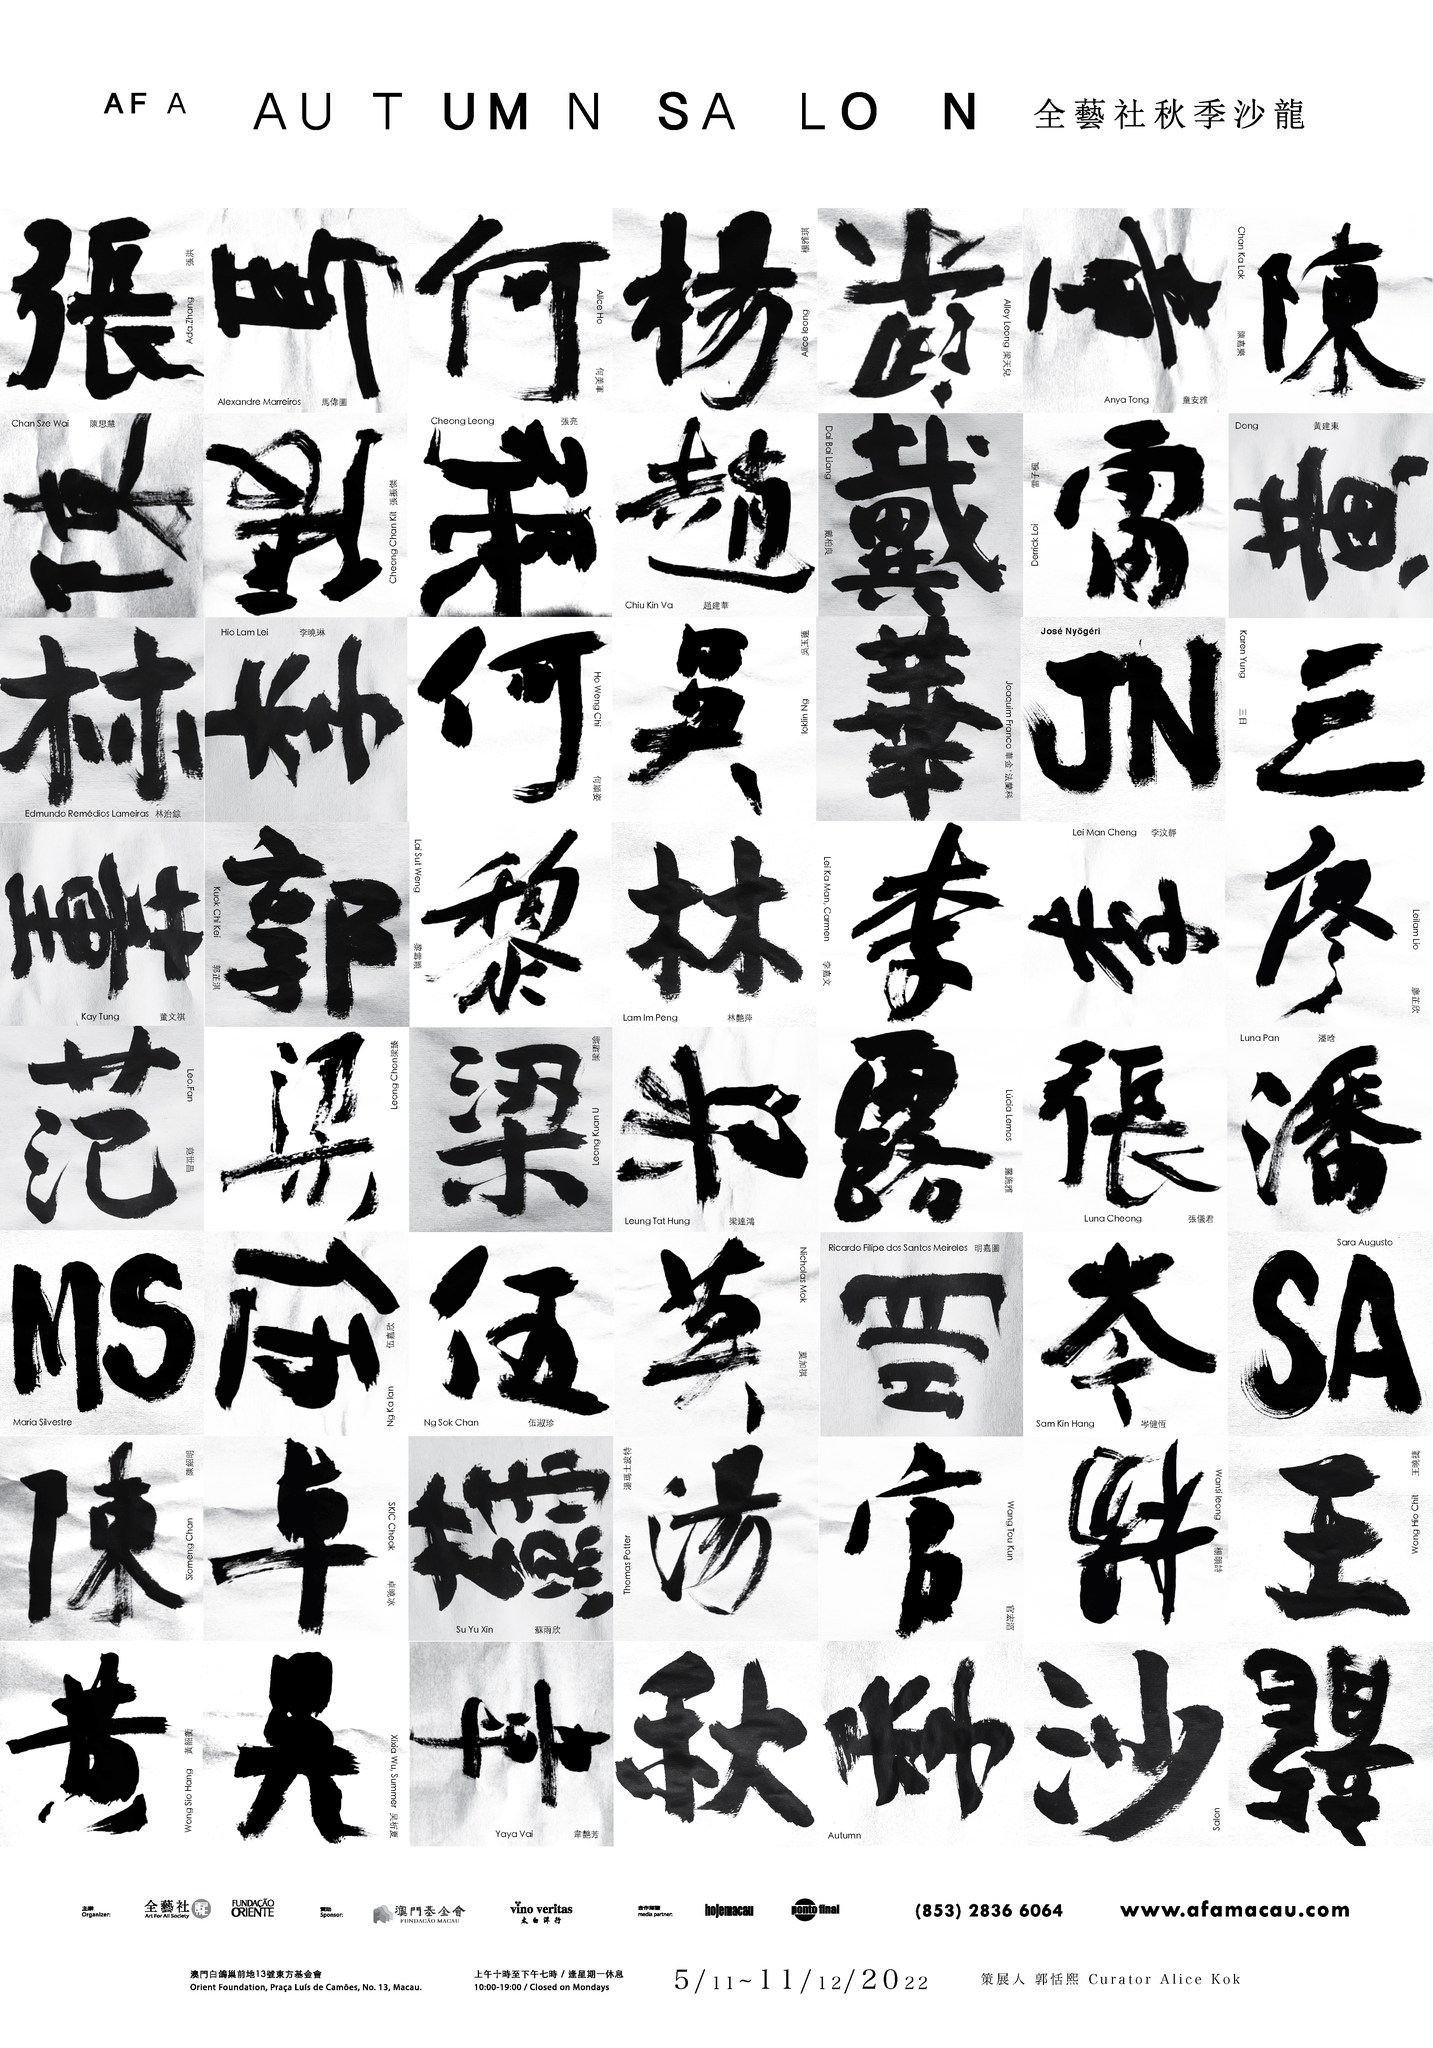 AFA AUTUMN SALON 全藝社秋季沙龍
張 張洪 Ada Zhang
馬 Alexandre Marreiros 馬偉圖
何 Alice Ho 何美軍
楊 Alice Ieong
梁 Alley Leong 梁天兒
童 Anya Tong 童安雅
陳 Chan Ka Lok 陳嘉樂
陳 Chan Sze Wai 陳思慧
張 Cheong Chan Kit 張振傑
張 Cheong Leong 張亮
趙 Chiu Kin Va 趙建華
戴 Dai Bai Liang 戴柏良
雷 Derrick Loi
黃 Dong 黃建東
林 Edmundo Remédios Lameiras 林治錀
李 Hio Lam Lei 李曉琳
何 Ho Weng Chi 何穎姿
吳 Iokiin Ng
華 Joaquim Franco 華金·法蘭科
JN José Nyögéri
三 Karen Yung 三日
董 Kay Tung 董文祺
郭 Kuok Chi Kei 郭芷淇
黎 Lai Sut Weng 黎雪穎
林 Lam Im Peng 林艷萍
李 Lei Ka Man, Carmen 李嘉文
李 Lei Man Cheng 李汶靜
廖 Leilam Lio 廖芷欣
范 Leo.Fan 范世昌
梁 Leong Chon
梁 Leong Kuong U
梁 Leung Tat Hung 梁達鴻
露 Lúcia Lemos 露施雅
張 Luna Cheong 張儀君
潘 Luna Pan 潘晗
MS Maria Silvestre
伍 Ng Ka Ian 伍嘉欣
伍 Ng Sok Chan 伍淑珍
莫 Nicholas Mok 莫加祺
Ricardo Filipe dos Santos Meireles 明嘉圖
岑 Sam Kin Hang 岑健恆
SA Sara Augusto
陳 Siomeng Chan 陳紹明
卓 SKIC Cheok 卓曉冰
蘇 Su Yu Xin 蘇雨欣
湯 Thomas Potter 湯瑪士波特
官 Wang Tou Kun 官宏滔
楊 Wansi Ieong 楊韻詩
王 Wong Hio Chit
黃 Wong Sio Hang
吳 Xixia Wu, Summer 吳析夏
韋 Yaya Vai 韋艷芳
秋
季 Autumn
沙 Salon
龍
主辦 Organizer: 全藝社 Art For All Society FUNDAÇÃO ORIENTE 贊助 Sponsor: 澳門基金會 FUNDAÇÃO MACAU vino veritas 太白洋行 合作媒體 media partner: hojemacau ponto final (853) 2836 6064 www.afamacau.com
澳門白鴿巢前地13號東方基金會
Orient Foundation, Praça Luís de Camões, No. 13, Macau.
上午十時至下午七時 / 逢星期一休息
10:00-19:00 / Closed on Mondays
5/11~11/12/2022
策展人 郭恬熙 Curator Alice Kok